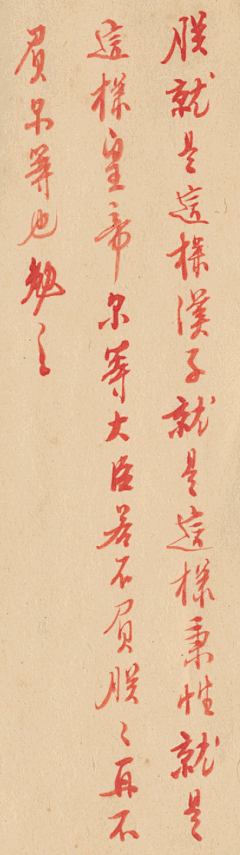 朕就是這樣漢子就是這樣秉性就是
這樣皇帝尔等大臣若不負朕朕再不
負尔等也勉之